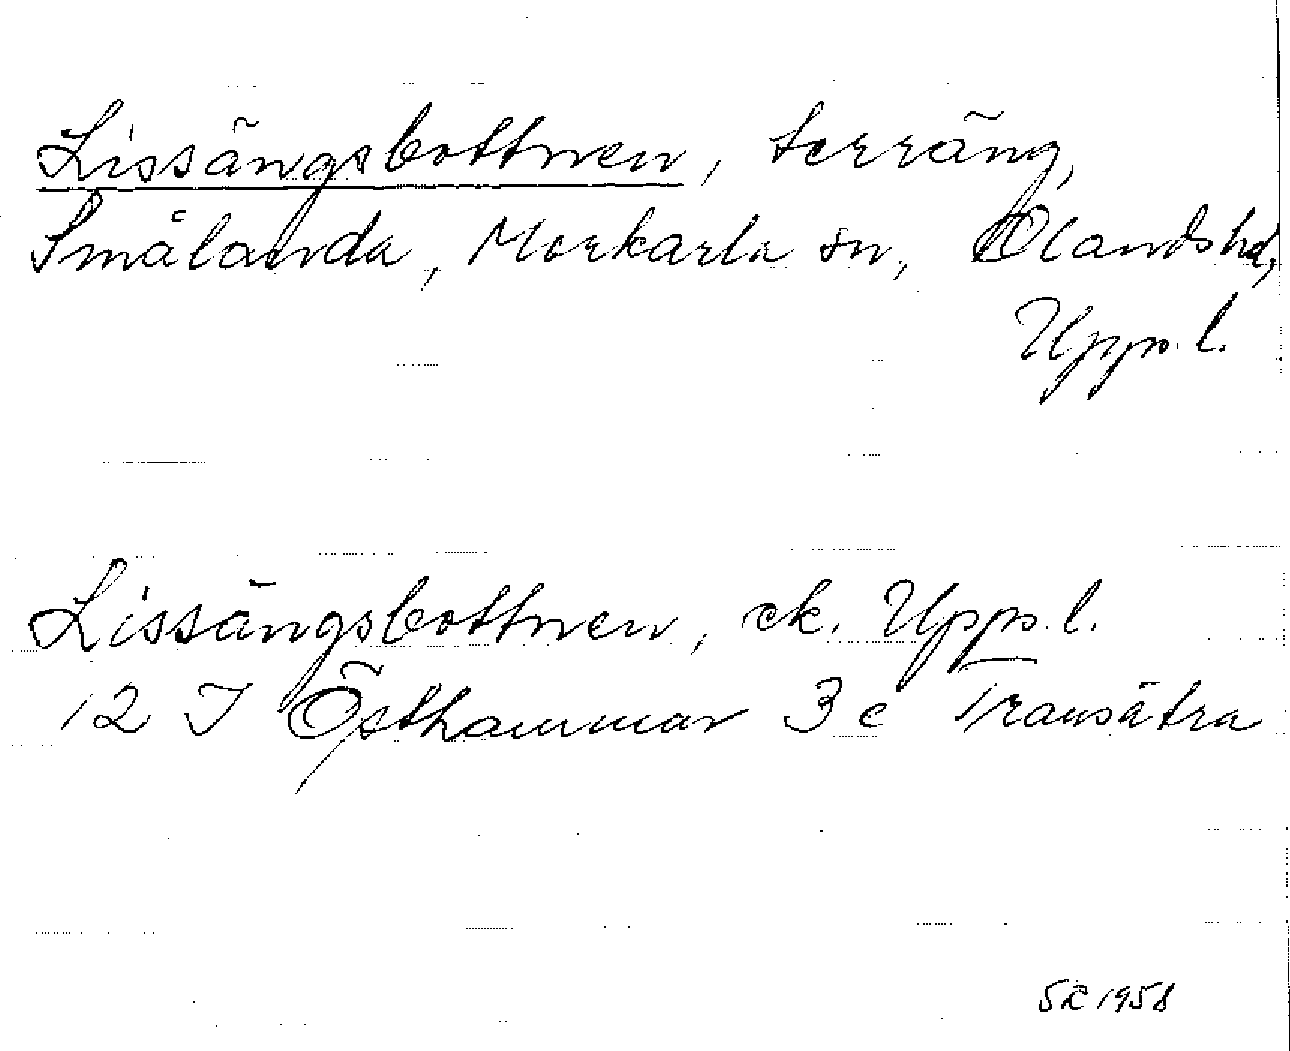 Lissängsbottnen, terräng,
Smålanda, Morkarla sn, Olandshd,
Upps. l.
Lissängsbottnen, ek. Upps. l.
12 I Östhammar 3 c Transätra
1958